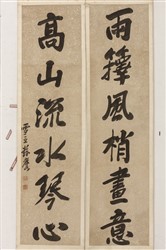 雨籜風梢畫意
高山流水琴心